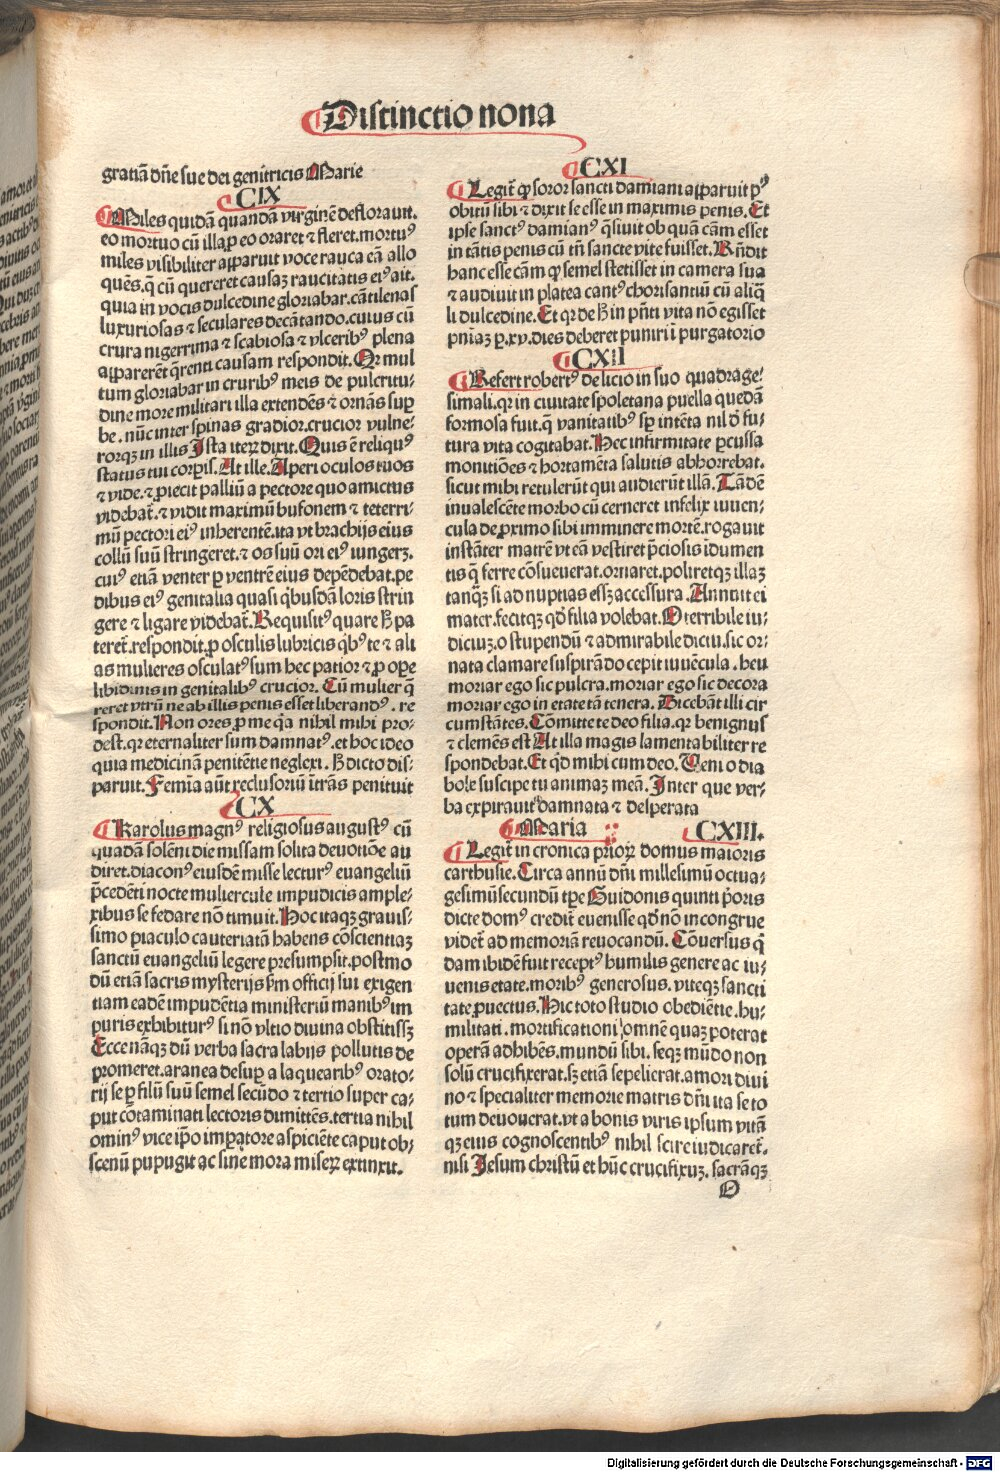 Distinctio nona
gratiā dn̄e sue dei genitricis Marie
CIX
Miles quidā quandā virginē deflorauit.
eo mortuo cū illa ꝓ eo oraret ⁊ fleret. mortuꝰ
miles visibiliter apparuit voce rauca eā allo
quēs. q̄ cū quereret causaʒ raucitatis eiꝰ ait.
quia in vocis dulcedine gloriabar. cātilenas
luxuriosas ⁊ seculares decātando. cuius cū
crura nigerrima ⁊ scabiosa ⁊ vlceribꝰ plena
apparerēt q̄renti causam respondit. Qr mul
tum gloriabar in cruribꝰ meis de pulcritu⸗
dine more militari illa extendēs ⁊ ornās suꝑ
be. nūc inter spinas gradior. crucior vulne⸗
rorqʒ in illis Ista iteꝝ dixit. Quis ē reliquꝰ
status tui corꝑis. At ille. Aperi oculos tuos
⁊ vide. ⁊ ꝓiecit palliū a pectore quo amictus
videbat᷑. ⁊ vidit maximū bufonem ⁊ teterri⸗
mū pectori eiꝰ inherentē. ita vt brachijs eius
collū suū stringeret. ⁊ os suū ori eiꝰ iungerʒ.
cuiꝰ etiā venter ꝑ ventrē eius depēdebat. pe
dibus eiꝰ genitalia quasi qͥbusdā loris strin
gere ⁊ ligare videbat᷑. Requisitꝰ quare h̄ pa
teret᷑. respondit. ꝓ osculis lubricis qͥbꝰ te ⁊ ali
as mulieres osculatꝰ sum hec patior ⁊ ꝓ oꝑe
libidinis in genitalibꝰ crucior. Cū mulier q̄
reret vtrū ne ab illis penis esset liberandꝰ. re
spondit. Non ores ꝓ me qꝛ nihil mihi pro⸗
dest. qꝛ eternaliter sum damnatꝰ. et hoc ideo
quia medicinā penitētie neglexi. h̄ dicto dis⸗
paruit. Femīa aūt reclusoriū ītrās penituit
CX
Karolus magnꝰ religiosus augustꝰ cū
quadā solēni die missam solita deuotiōe au
diret. diaconꝰ eiusdē misse lecturꝰ euangeliū
p̄cedēti nocte muliercule impudicis ample⸗
xibus se fedare nō timuit. Hoc itaqʒ grauis⸗
simo piaculo cauteriatā habens cōscientiaʒ
sanctū euangeliū legere presumpsit. postmo
dū etiā sacris mysterijs ẜm officij sui exigen
tiam eadē impudētia ministeriū manibꝰ im
puris exhibiturꝰ si nō vltio diuina obstitissʒ
Ecce nāqʒ dū verba sacra labijs pollutis de
promeret. aranea desuꝑ a laquearibꝰ orato⸗
rij se ꝑ filū suū semel secūdo ⁊ tertio super ca⸗
put cōtaminati lectoris dimittēs. tertia nihil
ominꝰ vice ip̄o imꝑatore aspiciēte caput ob⸗
scenū pupugit ac sine mora miseꝝ extinxit.
CXI
Legit᷑ ꝙ soror sancti damiani apparuit pꝰ
obitū sibi ⁊ dixit se esse in maximis penis. Et
ipse sanctꝰ damianꝰ q̄siuit ob quā cām esset
in tātis penis cū tn̄ sancte vite fuisset. Rn̄dit
hanc esse cām ꝙ semel stetisset in camera sua
⁊ audiuit in platea cantꝰ chorisantiū cū aliq̄
li dulcedine. Et qꝛ de h̄ in p̄nti vita nō egisset
pn̄iaʒ ꝑ .xv. dies deberet puniri ī purgatorio
CXII
Refert robertꝰ de licio in suo quadrage⸗
simali. qꝛ in ciuitate spoletana puella quedā
formosa fuit. q̄ vanitatibꝰ sꝑ intēta nil d̄ fu⸗
tura vita cogitabat. Hec infirmitate ꝑcussa
monitiōes ⁊ hortamēta salutis abhorrebat.
sicut mihi retulerūt qui audierūt illā. Tādē
inualescēte morbo cū cerneret infelix iuuen⸗
cula de ꝓximo sibi imminere mortē. rogauit
instāter matrē vt eā vestiret p̄ciosis īdumen
tis q̄ ferre cōsueuerat. ornaret. poliretqʒ illaʒ
tanqʒ si ad nuptias essʒ accessura. Annuit ei
mater. fecitqʒ qd̄ filia volebat. O terribile iu⸗
diciuʒ. o stupendū ⁊ admirabile dictu. sic or⸗
nata clamare suspirādo cepit iuuēcula. heu
moriar ego sic pulcra. moriar ego sic decora
moriar ego in etate tā tenera. Dicebāt illi cir
cumstātes. Cōmitte te deo filia. qꝛ benignus
⁊ clemēs est At illa magis lamentabiliter re
spondebat. Et qͥd mihi cum deo. Veni o dia
bole suscipe tu animaʒ meā. Inter que ver⸗
ba expirauit damnata ⁊ desperata
Maria CXIII.
Legit᷑ in cronica prioꝝ domus maioris
carthusie. Circa annū dn̄i millesimū octua⸗
gesimū secundū tꝑe Guidonis quinti p̄oris
dicte domꝰ credit᷑ euenisse qd̄ nō incongrue
videt᷑ ad memoriā reuocandū. Cōuersus q̄
dam ibidē fuit receptꝰ humilis genere ac iu⸗
uenis etate. moribꝰ generosus. viteqʒ sancti
tate ꝓuectus. Hic toto studio obediētie. hu⸗
militati. mortificationi omnē quaʒ poterat
operā adhibēs. mundū sibi. seqʒ mūdo non
solū crucifixerat. sʒ etiā sepelierat. amori diui
no ⁊ specialiter memorie matris dn̄i ita se to
tum deuouerat. vt a bonis viris ipsum vitā
qʒ eius cognoscentibꝰ nihil scire iudicaret᷑.
nisi Jesum christū et hūc crucifixuʒ. sacrāqʒ
O
Digitalisierung gefördert durch die Deutsche Forschungsgemeinschaft - DFG